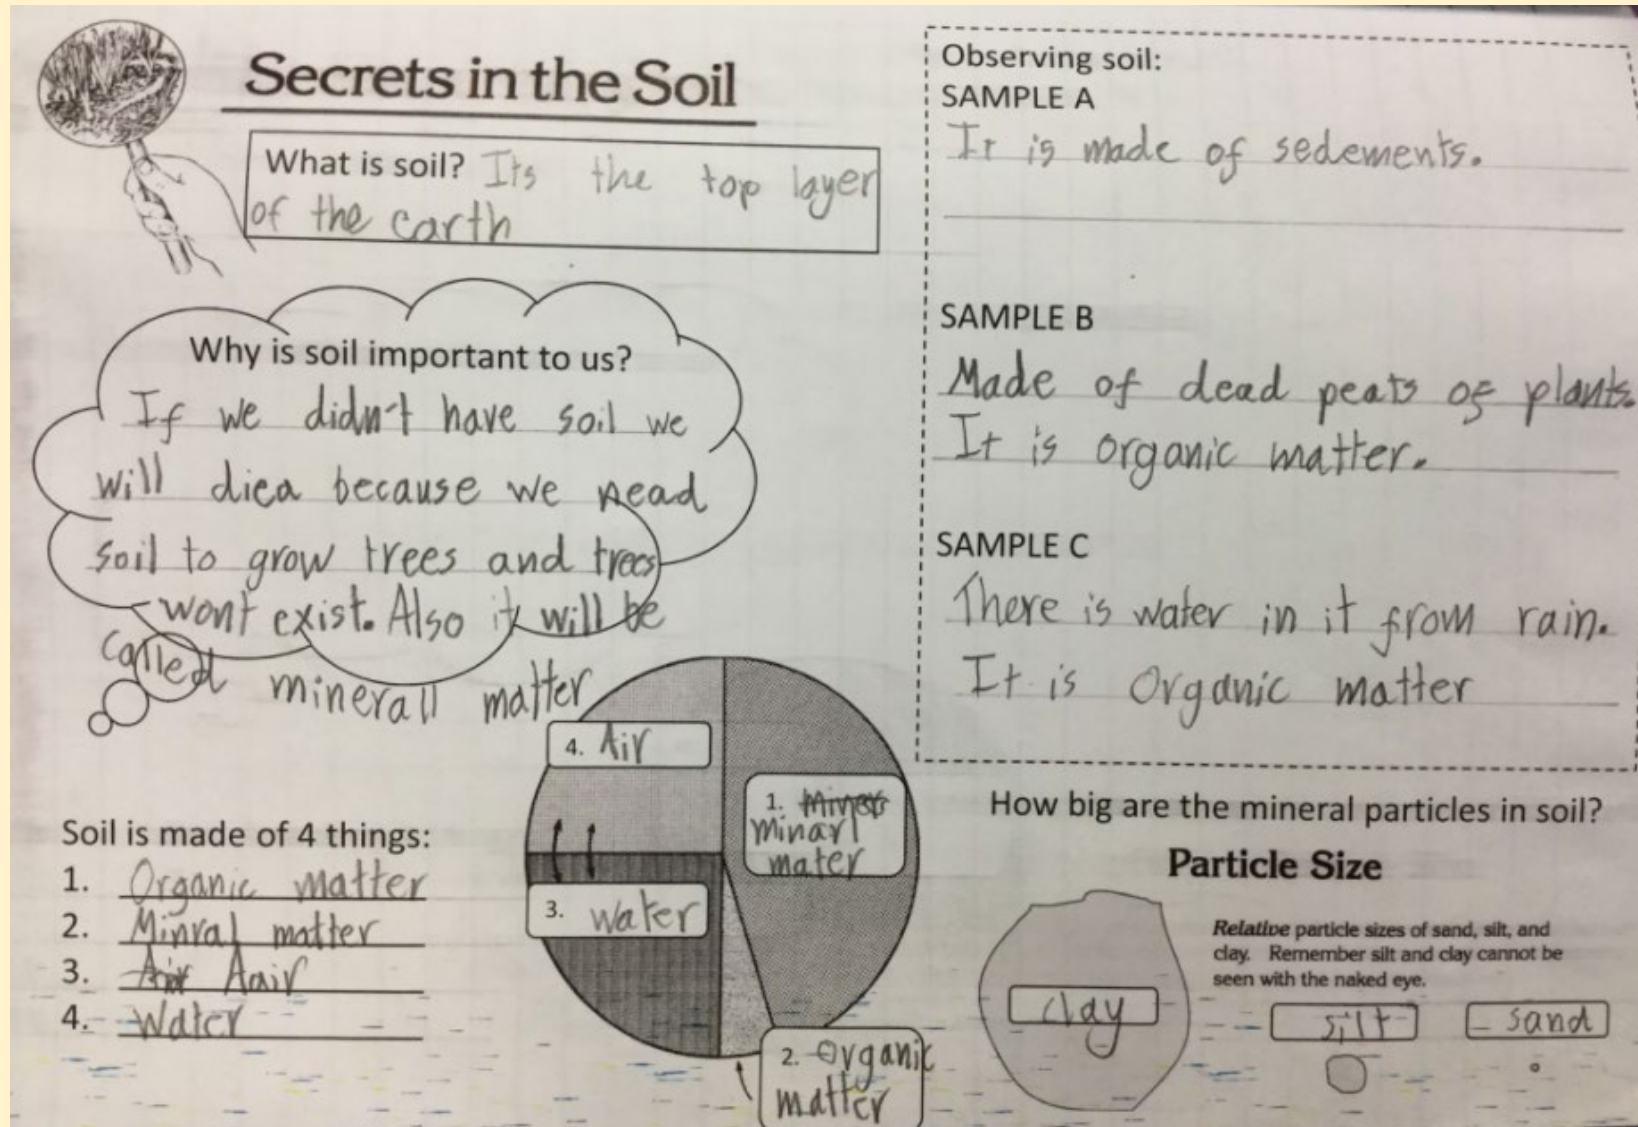 Secrets in the Soil
What is soil? Its the top layer
of the earth
Why is soil important to us?
If we didn't have soil we
will diea because we nead
soil to grow trees and trees
wont exist. Also it will be
called minerall matter
Soil is made of 4 things:
1. Organic matter
2. Minral matter
3. Air Aair
4. Water
4. Air
1.
minarl
mater
3. water
2. Organic
matter
Observing soil:
SAMPLE A
It is made of sedements.
SAMPLE B
Made of dead peats of plants.
It is organic matter.
SAMPLE C
There is water in it from rain.
It is Organic matter
How big are the mineral particles in soil?
Particle Size
Relative particle sizes of sand, silt, and
clay. Remember silt and clay cannot be
seen with the naked eye.
clay
silt
sand